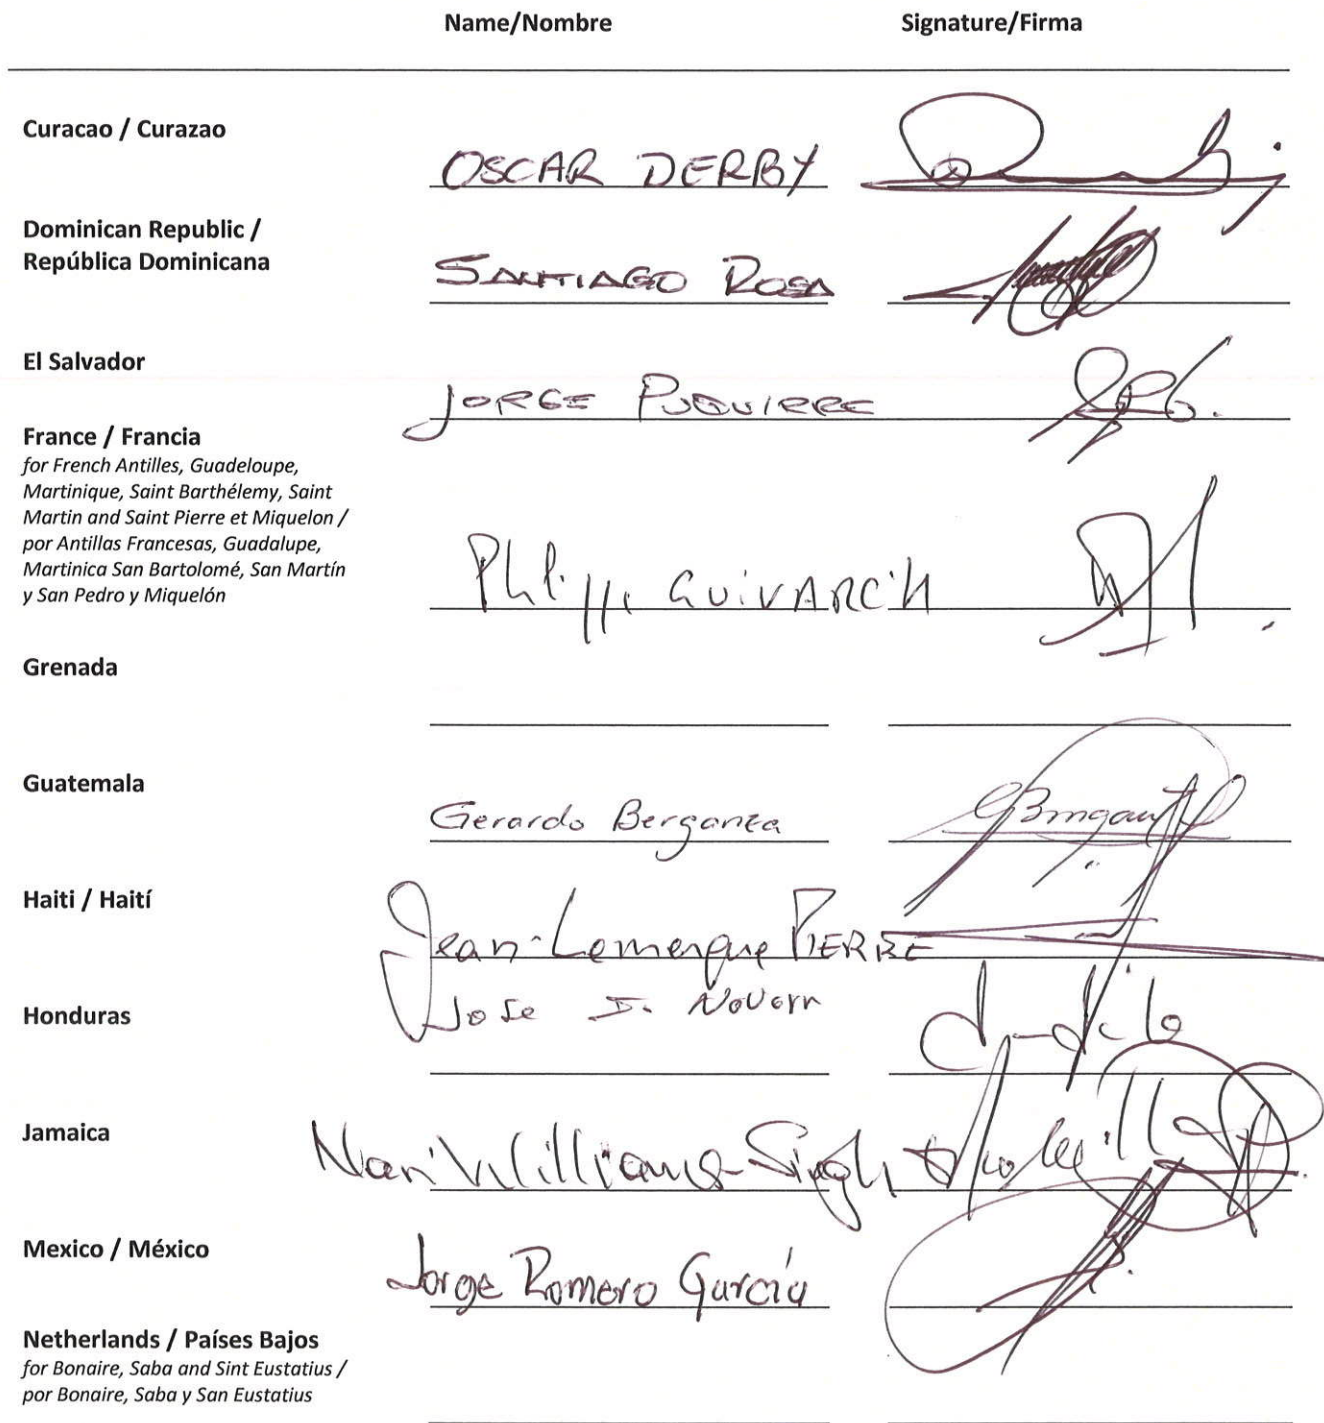 Name/Nombre Signature/Firma
Curacao / Curazao
OSCAR DERBY
Dominican Republic /
República Dominicana
SANTIAGO ROSA
El Salvador
JORGE PUQUIRRE
France / Francia
for French Antilles, Guadeloupe,
Martinique, Saint Barthélemy, Saint
Martin and Saint Pierre et Miquelon /
por Antillas Francesas, Guadalupe,
Martinica San Bartolomé, San Martín
y San Pedro y Miquelón
GUIVARC'H
Grenada
Guatemala
Gerardo Berganza
Haiti / Haití
Jean-Lemerque PIERRE
Honduras
Jose I.
Jamaica
Nari Williams-Singh
Mexico / México
Jorge Romero García
Netherlands / Países Bajos
for Bonaire, Saba and Sint Eustatius /
por Bonaire, Saba y San Eustatius